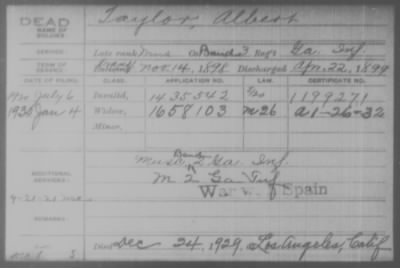 DEAD
NAME OF SOLDIER: Taylor, Albert
SERVICE: Late rank Co. Band 3 Reg't Ga. Inf.
TERM OF SERVICE: Enrolled Nov. 14, 1898 Discharged Apr. 22, 1899
DATE OF FILING. CLASS. APPLICATION NO. LAW. CERTIFICATE NO.
1920 July 6 Invalid, 1435542 1199271
1930 Jan 4 Widow, 1658103 M26 A 1-26-32
Minor,
Band
Musc. 2 Ga. Inf.
ADDITIONAL SERVICES: M 2 Ga Inf
War w. Spain
REMARKS:
Died Dec 24, 1929, Los Angeles, Calif